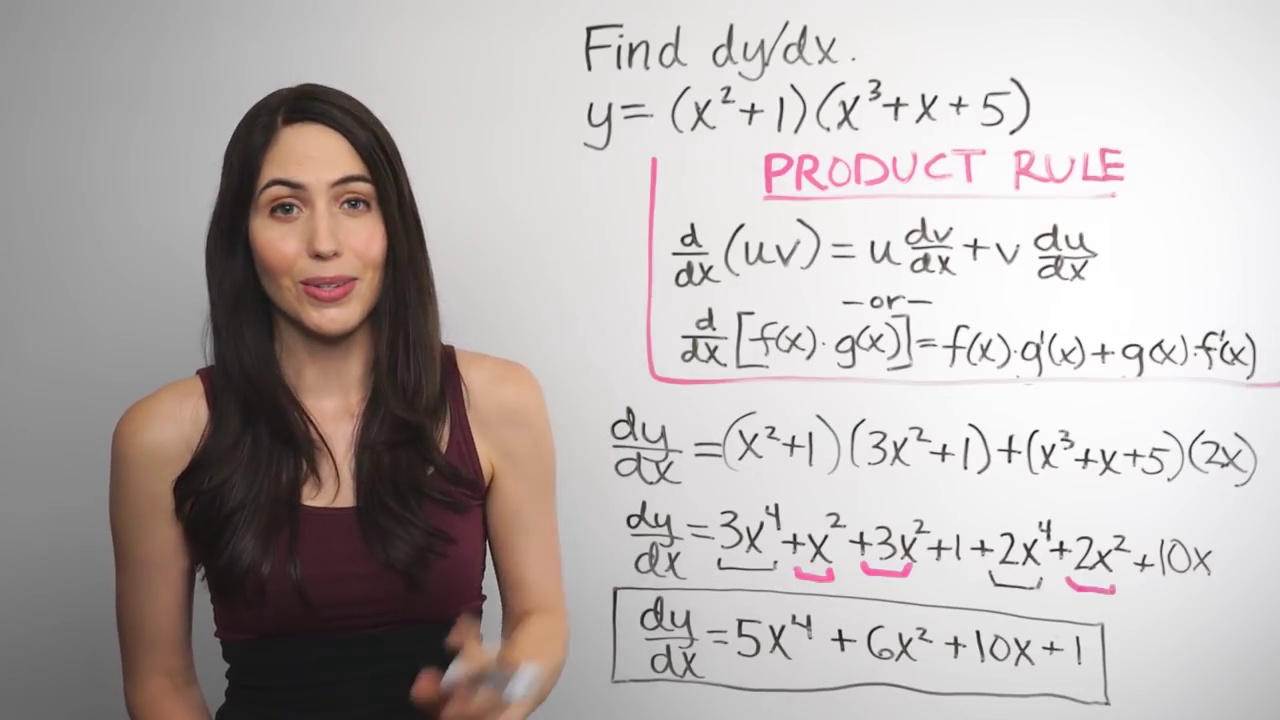 Find dy/dx.
y = (x²+1)(x³+x+5)
PRODUCT RULE
d/dx (uv) = u dv/dx + v du/dx
-or-
d/dx [f(x)·g(x)] = f(x)·g'(x) + g(x)·f'(x)
dy/dx = (x²+1)(3x²+1)+(x³+x+5)(2x)
dy/dx = 3x⁴+x²+3x²+1+2x⁴+2x²+10x
dy/dx = 5x⁴+6x²+10x+1